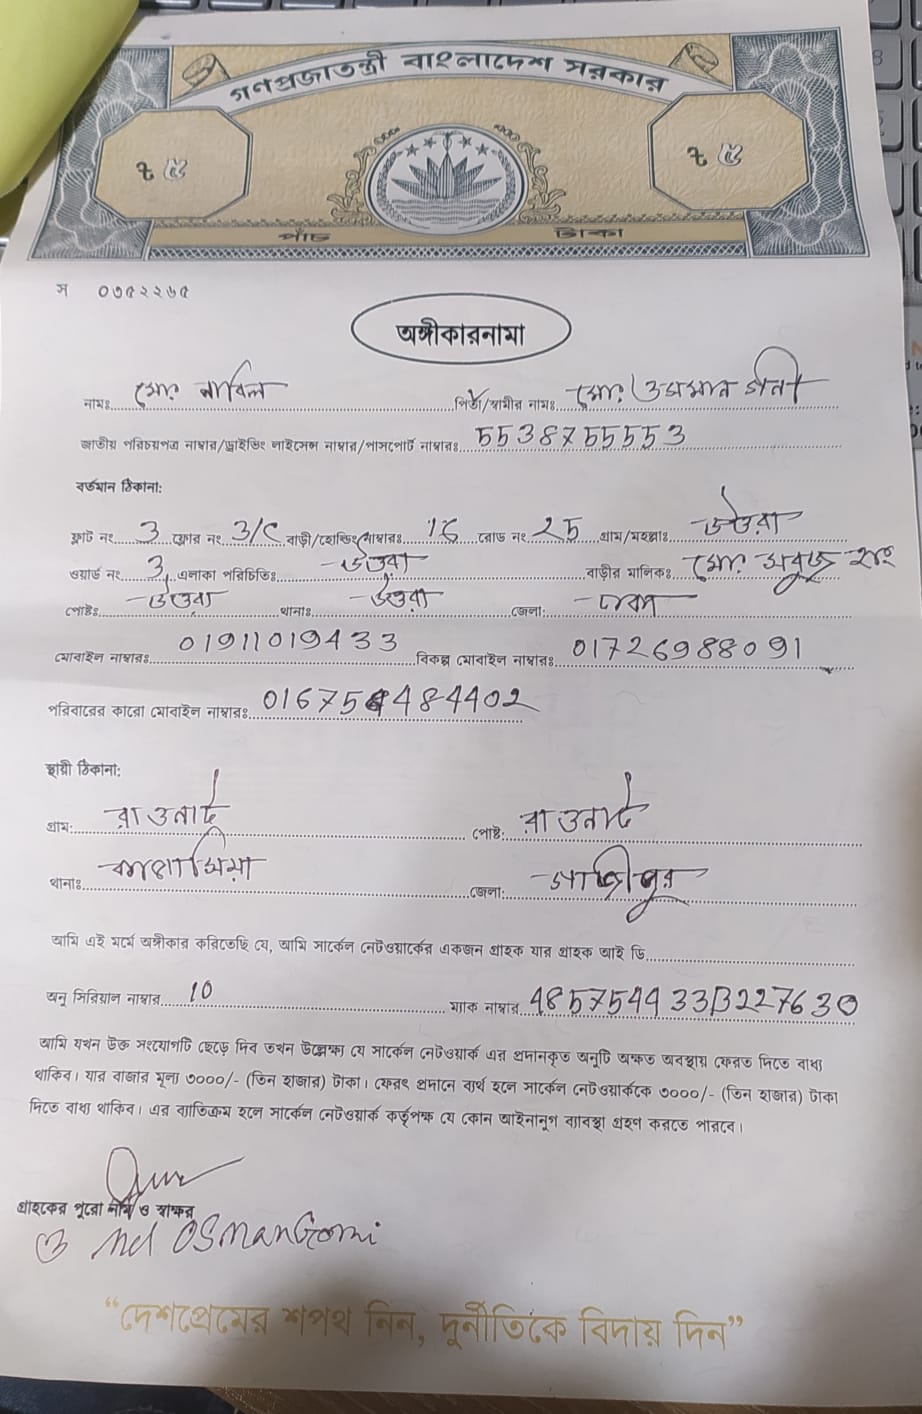 গণপ্রজাতন্ত্রী বাংলাদেশ সরকার
৳ ৫ ৳ ৫
পাঁচ টাকা
স ০৩৫২২৬৫
অঙ্গীকারনামা
নামঃ মোঃ নাবিল পিতা/স্বামীর নামঃ মোঃ ওসমান গনী
জাতীয় পরিচয়পত্র নাম্বার/ড্রাইভিং লাইসেন্স নাম্বার/পাসপোর্ট নাম্বারঃ 5538755553
বর্তমান ঠিকানা:
ফ্লাট নং 3 ফ্লোর নং 3/C বাড়ী/হোল্ডিং নাম্বারঃ 16 রোড নং 25 গ্রাম/মহল্লাঃ
ওয়ার্ড নং 3 এলাকা পরিচিতিঃ বাড়ীর মালিকঃ মোঃ সবুজ
পোষ্টঃ থানাঃ জেলা: ঢাকা
মোবাইল নাম্বারঃ 01911019433 বিকল্প মোবাইল নাম্বারঃ 01726988091
পরিবারের কারো মোবাইল নাম্বারঃ 01675 484402
স্থায়ী ঠিকানা:
গ্রাম: রাওনাট পোষ্ট: রাওনাট
থানাঃ কাপাসিয়া জেলা: গাজীপুর
আমি এই মর্মে অঙ্গীকার করিতেছি যে, আমি সার্কেল নেটওয়ার্কের একজন গ্রাহক যার গ্রাহক আই ডি
অনু সিরিয়াল নাম্বার 10 ম্যাক নাম্বার 485754433B227630
আমি যখন উক্ত সংযোগটি ছেড়ে দিব তখন উল্লেক্ষ্য যে সার্কেল নেটওয়ার্ক এর প্রদানকৃত অনুটি অক্ষত অবস্থায় ফেরত দিতে বাধ্য
থাকিব। যার বাজার মূল্য ৩০০০/- (তিন হাজার) টাকা। ফেরৎ প্রদানে ব্যর্থ হলে সার্কেল নেটওয়ার্ককে ৩০০০/- (তিন হাজার) টাকা
দিতে বাধ্য থাকিব। এর ব্যতিক্রম হলে সার্কেল নেটওয়ার্ক কর্তৃপক্ষ যে কোন আইনানুগ ব্যাবস্থা গ্রহণ করতে পারবে।
গ্রাহকের পুরো নাম ও স্বাক্ষর
Md OSManGoni
“দেশপ্রেমের শপথ নিন, দুর্নীতিকে বিদায় দিন”